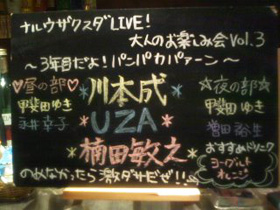 ナルウザクスダLIVE!
大人のお楽しみ会Vol.3
～3年目だよ!パンパカパァーン～
♡昼の部♡
甲斐田ゆき
永井幸子
*川本成*
*UZA*
*楠田敏之*
☆夜の部☆
甲斐田ゆき
増田裕生
おすすめドリンク
ヨーグルト
オレンジ
のめなかったら激ダサだぜ!!